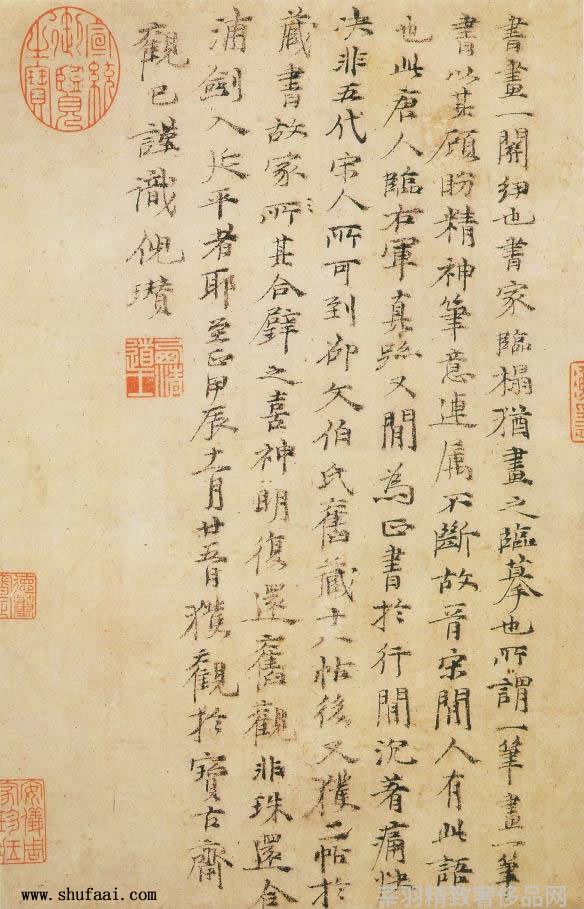 書畫一關紐也書家臨搨猶畫之臨摹也所謂一筆畫一筆
書以其顧盼精神筆意連属不斷故晋宋間人有此語
也此唐人臨右軍真跡又間為正書於行間沉著痛快
决非五代宋人所可到卻文伯氏舊藏十八帖後又獲二帖於
蔵書故家所其合璧之喜神明復還舊觀非珠還合
浦劍入延平者耶至正甲辰十一月廿五日獲觀於寶古齋
觀已謹識倪瓚
宣統御覽之寶
www.shufaai.com